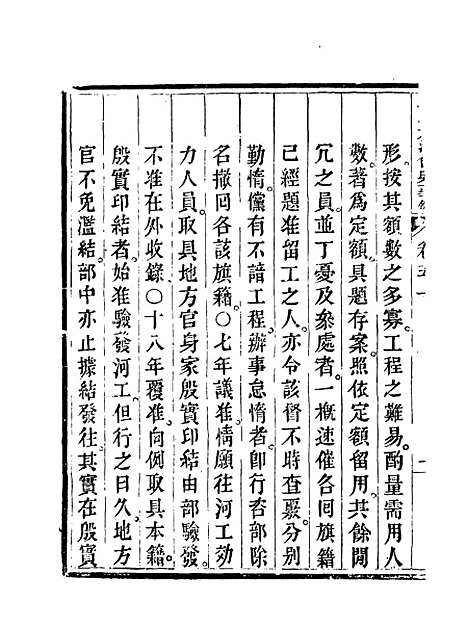 卷五一
形按其額數之多寡工程之難易酌量需用人
數著爲定額具題存案照依定額留用其餘閒
冗之員並丁憂及叅處者一槪速催各囘旗籍
已經題准留工之人亦令該督不時查覈分别
勤惰儻有不諳工程辦事怠惰者卽行咨部除
名撤囘各該旗籍〇七年議准情願往河工効
力人員取具地方官身家殷實印結由部驗發
不准在外收錄〇十八年覆准向例取具本籍
殷實印結者始准驗發河工但行之日久地方
官不免濫結部中亦止據結發往其實在殷實